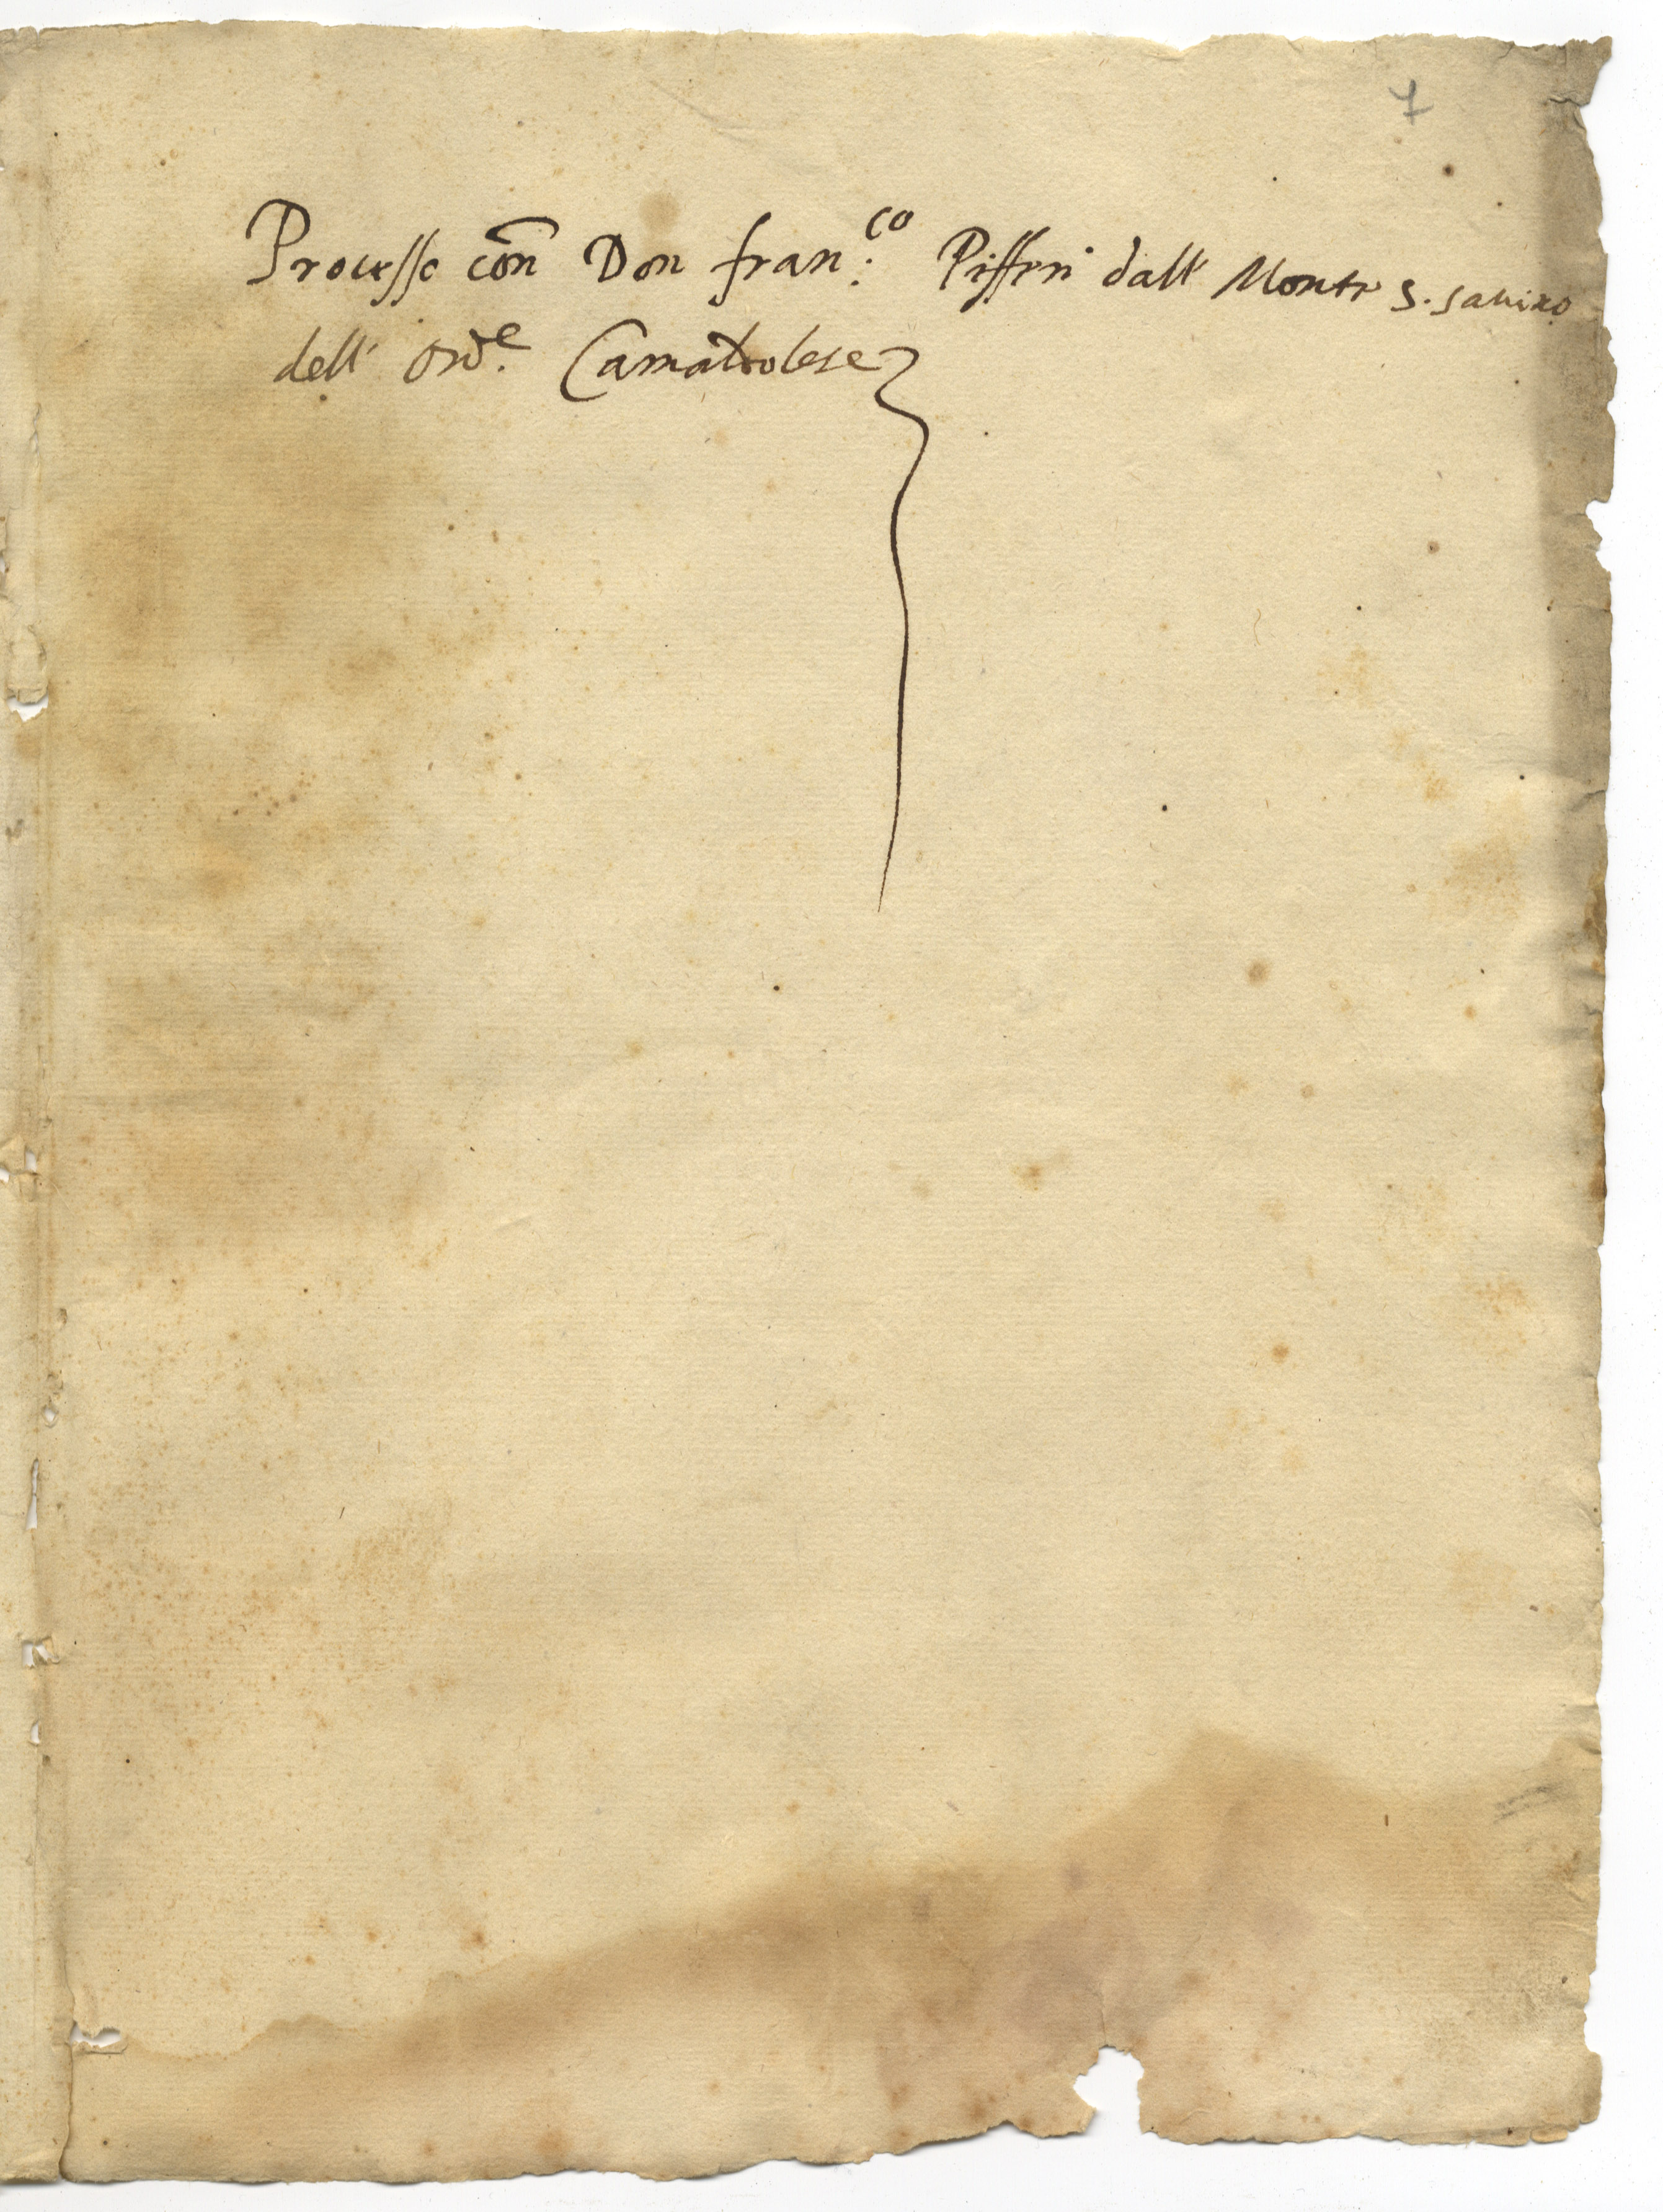 7
Processo cõn Don fran:co Pifferi dall Monte S. Sauino
dell' Ord.e Camaldolese